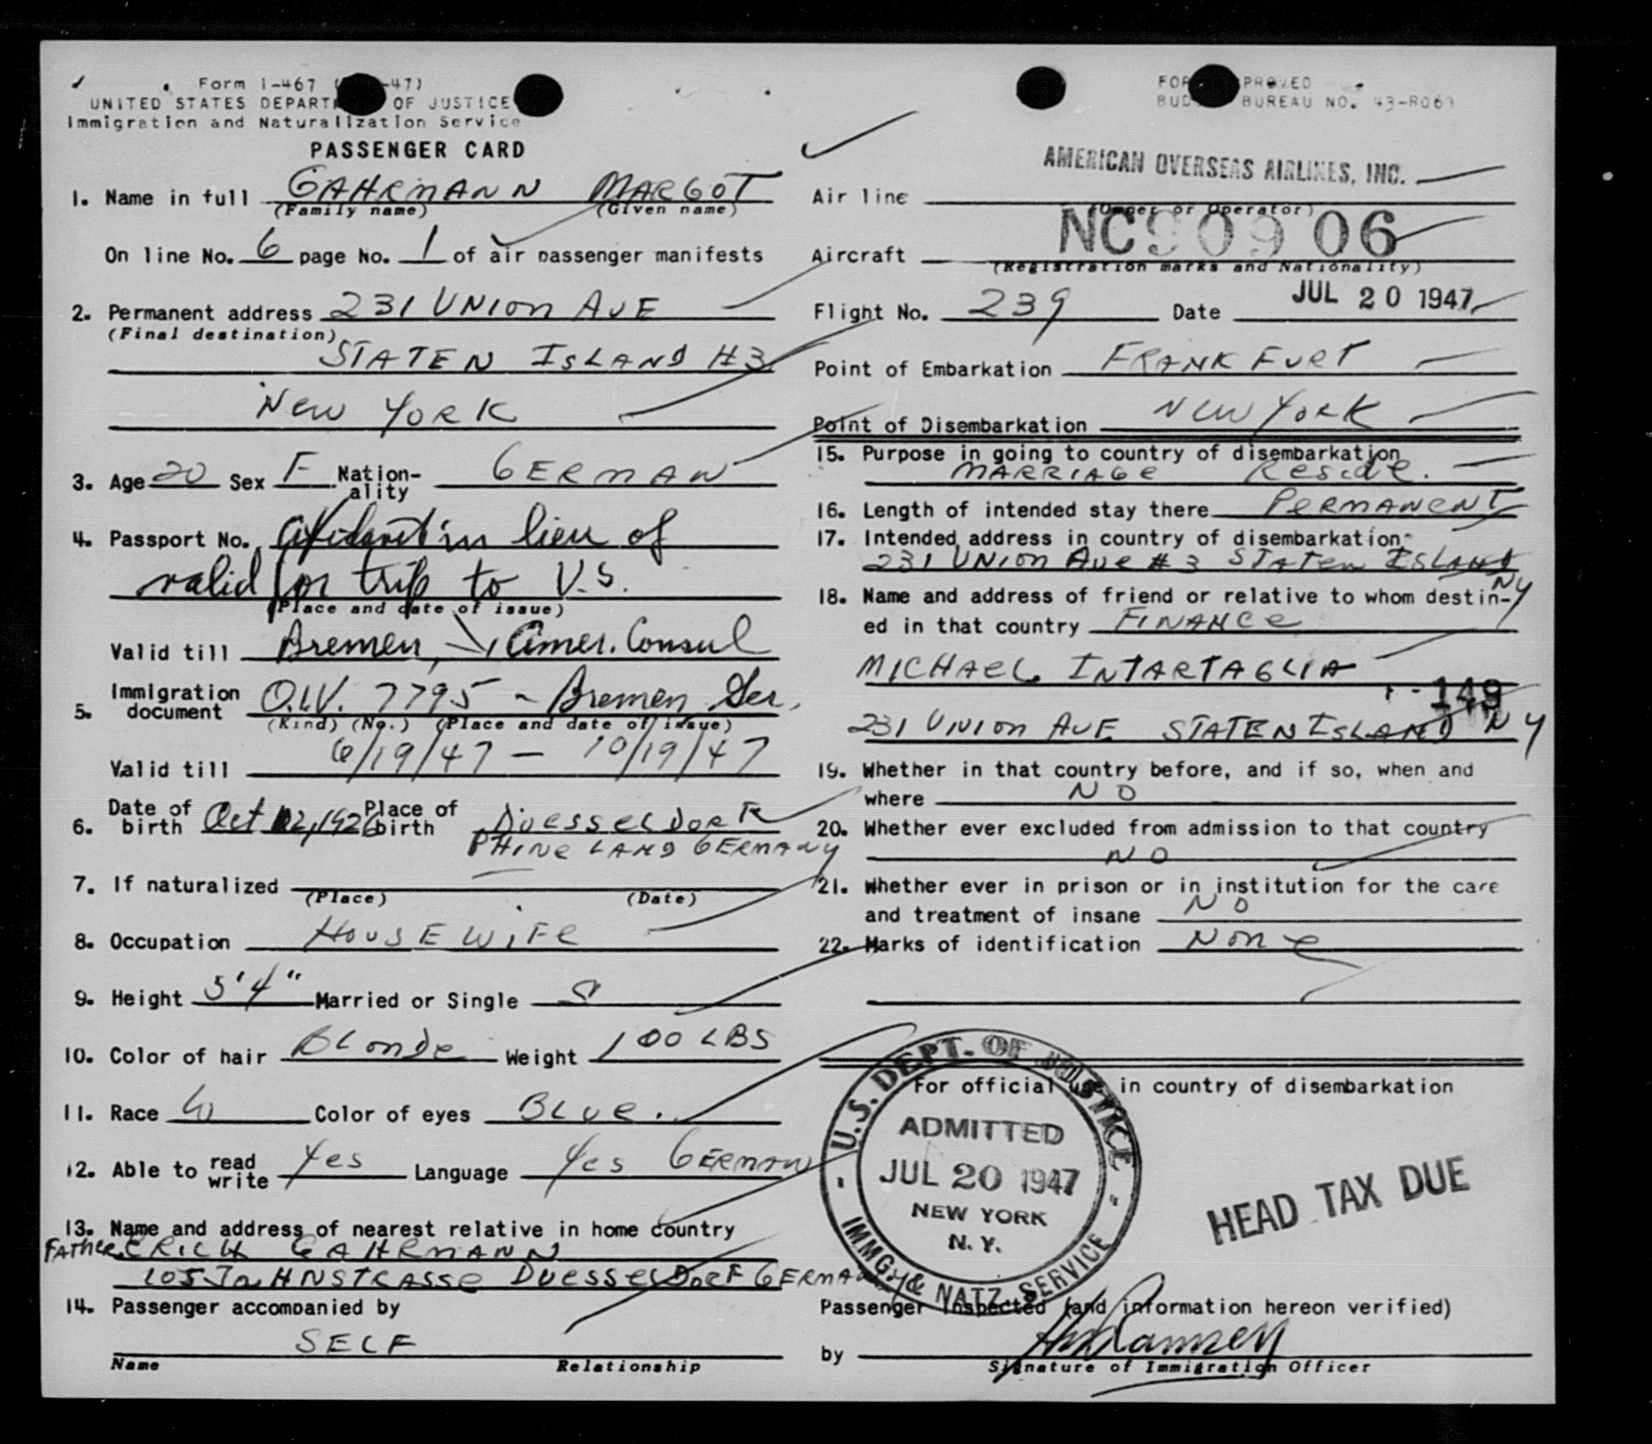 Form I-467 ( -47)
UNITED STATES DEPARTM OF JUSTICE
Immigration and Naturalization Service
PASSENGER CARD
FOR PROVED
BUD BUREAU NO. 43-R063
1. Name in full GAHRMANN MARGOT
(Family name) (Given name)
On line No. 6 page No. 1 of air passenger manifests
2. Permanent address 231 UNION AVE
(Final destination)
STATEN ISLAND #3
NEW YORK
3. Age 20 Sex F Nation-ality GERMAN
4. Passport No. Affidavit in lieu of
valid for trip to U.S.
(Place and date of issue)
Valid till Bremen, Amer. Consul
5. Immigration document Q.I.V. 7795 - Bremen Ger.
(Kind) (No.) (Place and date of issue)
Valid till 6/19/47 - 10/19/47
6. Date of birth Oct 12, 1926 Place of birth DUESSELDORF
RHINELAND GERMANY
7. If naturalized
(Place) (Date)
8. Occupation HOUSEWIFE
9. Height 5'4" Married or Single S
10. Color of hair BLONDE Weight 100 LBS
11. Race W Color of eyes BLUE.
12. Able to read write Yes Language Yes GERMAN
13. Name and address of nearest relative in home country
FATHER ERICH GAHRMANN
105 JAHNSTRASSE DUESSELDORF GERMANY
14. Passenger accompanied by
SELF
Name Relationship
AMERICAN OVERSEAS AIRLINES, INC.
Air line
(Owner or Operator)
Aircraft NC90906
(Registration marks and Nationality)
Flight No. 239 Date JUL 20 1947
Point of Embarkation FRANKFURT
Point of Disembarkation NEW YORK
15. Purpose in going to country of disembarkation
MARRIAGE Reside.
16. Length of intended stay there PERMANENT
17. Intended address in country of disembarkation
231 UNION AVE #3 STATEN ISLAND
NY
18. Name and address of friend or relative to whom destin-
ed in that country FINANCE
MICHAEL INTARTAGLIA
149
231 UNION AVE STATEN ISLAND NY
19. Whether in that country before, and if so, when and
where NO
20. Whether ever excluded from admission to that country
NO
21. Whether ever in prison or in institution for the care
and treatment of insane NO
22. Marks of identification None
For official use in country of disembarkation
U.S. DEPT. OF JUSTICE
ADMITTED
JUL 20 1947
NEW YORK
N.Y.
IMMG. & NATZ. SERVICE
HEAD TAX DUE
Passenger inspected (and information hereon verified)
by Ramsey
Signature of Immigration Officer